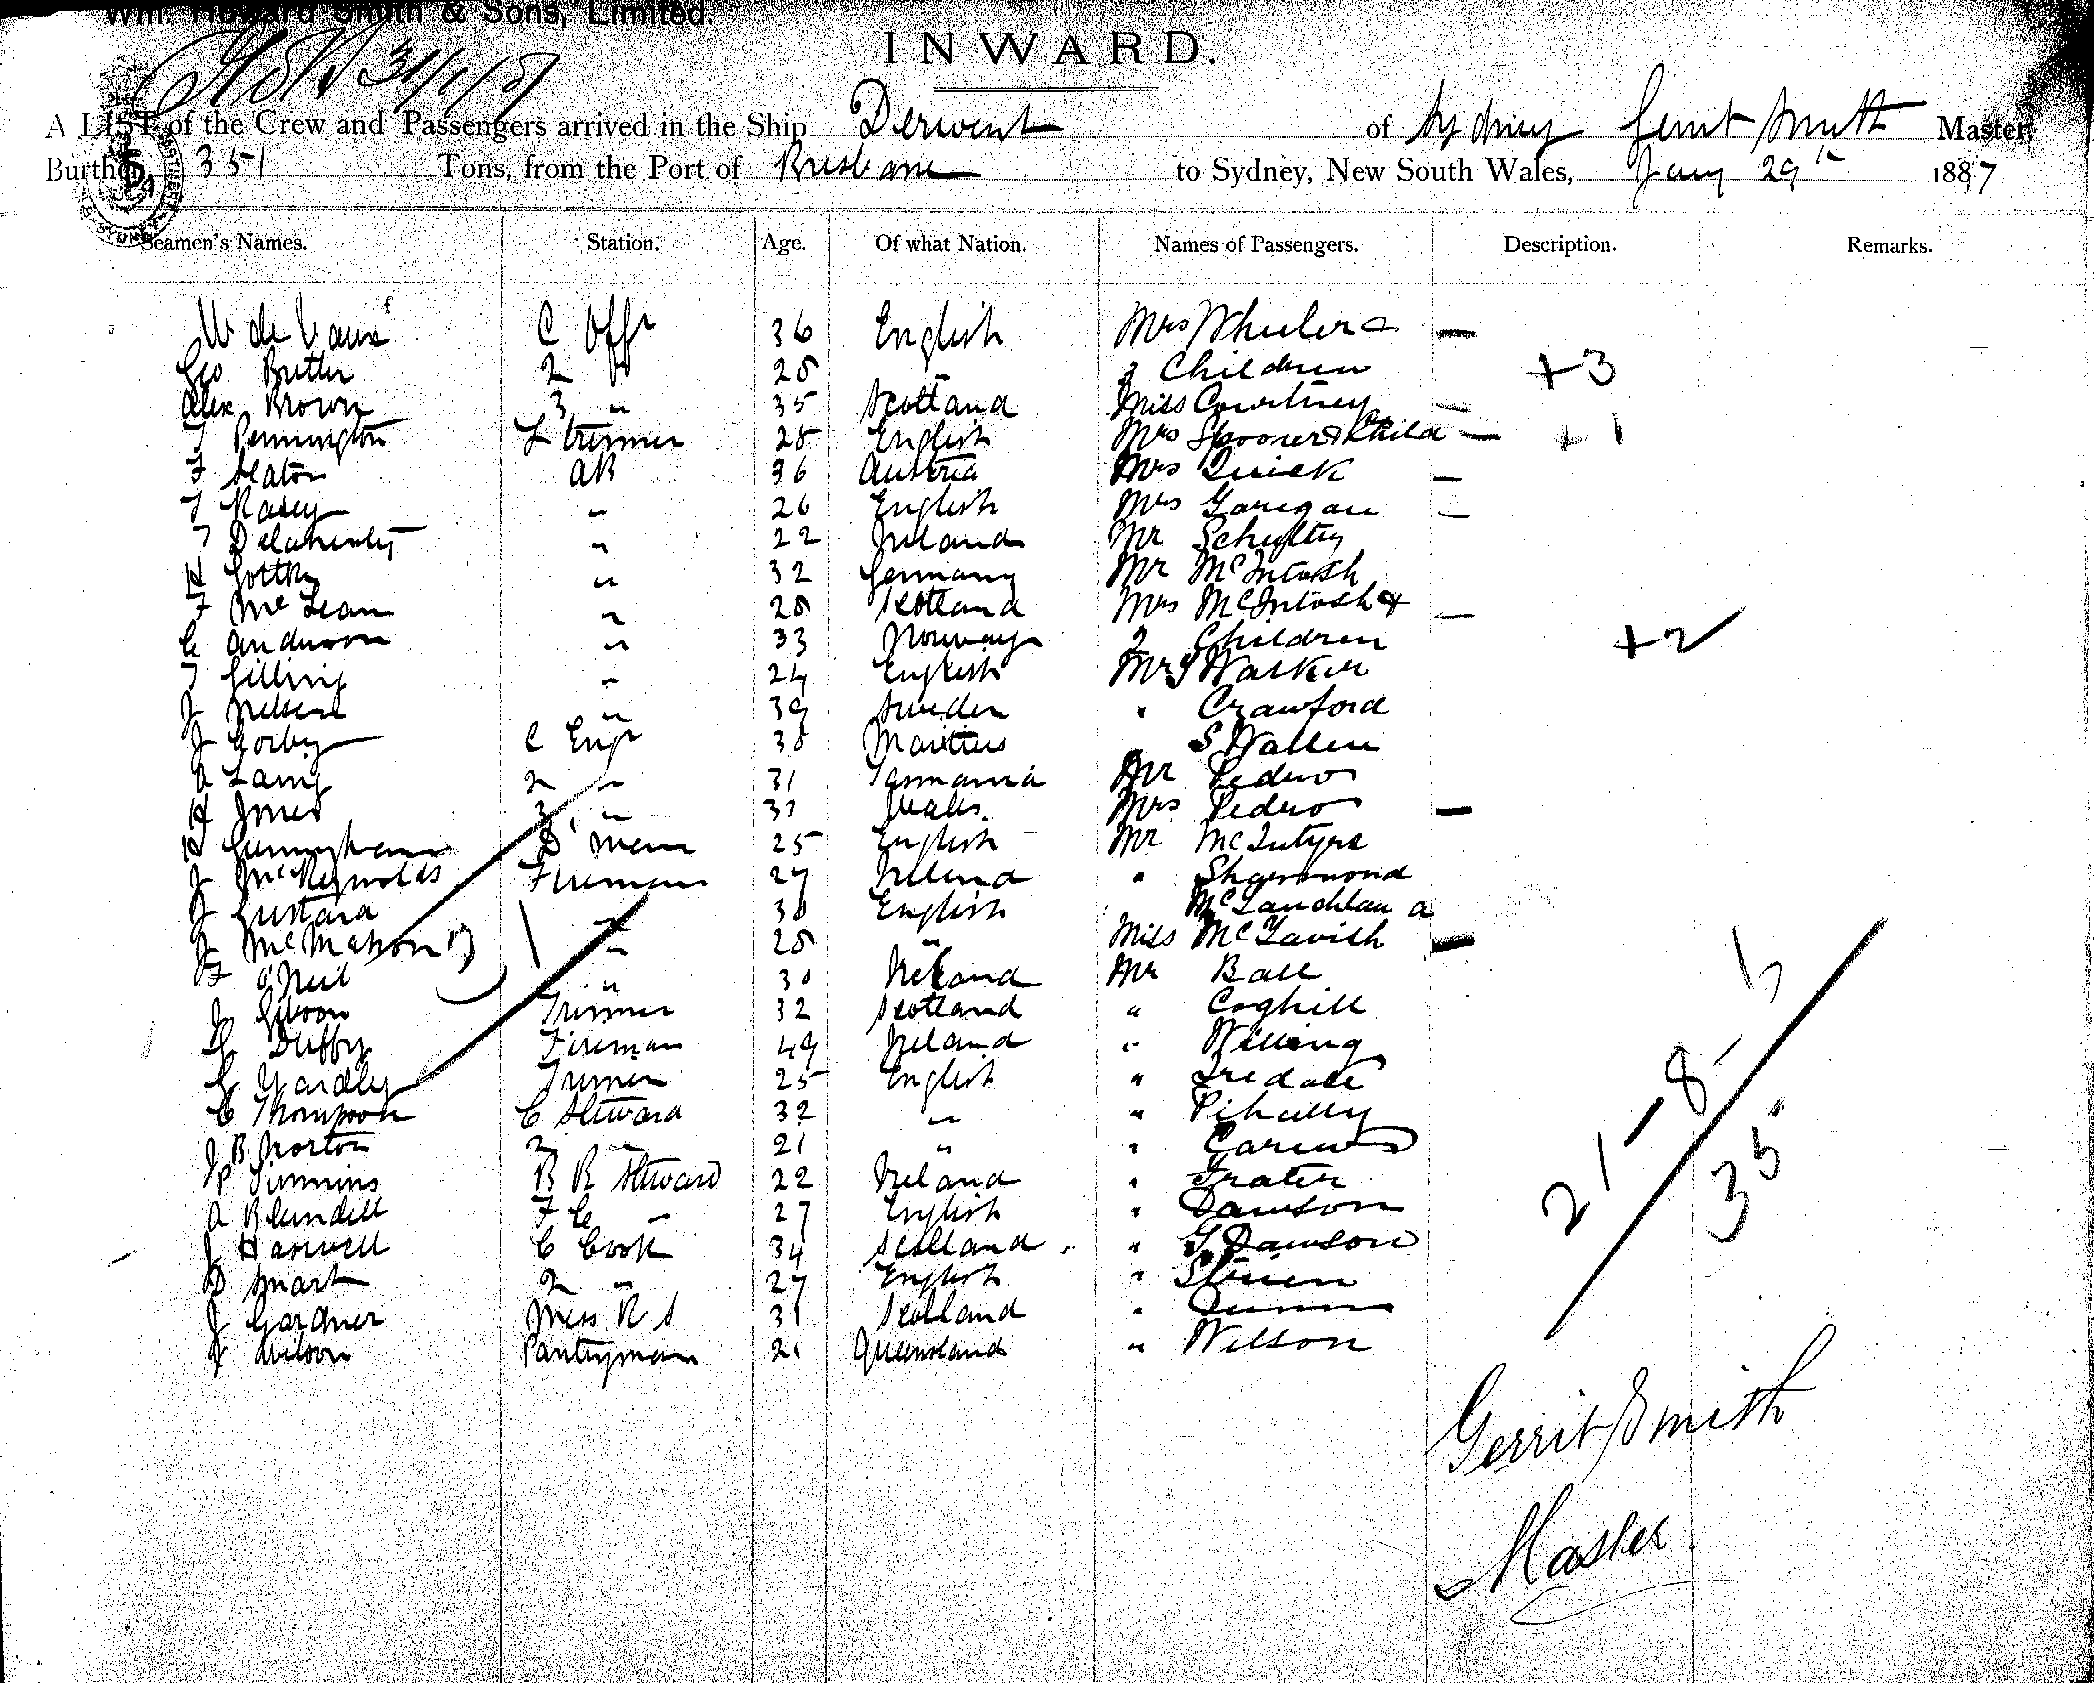 Wm. Howard Smith & Sons, Limited.
INWARD.
A LIST of the Crew and Passengers arrived in the Ship Derwent of Sydney Gerrit Smith Master,
Burthen 351 Tons, from the Port of Brisbane to Sydney, New South Wales, Jany 29th 1887
Seamen's Names. Station. Age. Of what Nation. Names of Passengers. Description. Remarks.
W de C Offr 36 English Mrs Wheeler &
Geo Butler 2 " 28 " 3 Children +3
Alex Brown 3 " 35 Scotland Miss Courtney
Pennington L trimmer 28 English Mrs Spooner & Child +1
F Seaton AB 36 Austria Mrs Quick
T Kasey " 26 English Mrs Garigan
T " 22 Ireland Mr
H " 32 Germany Mr McIntosh
F McLean " 28 Scotland Mrs McIntosh &
C Anderson " 33 Norway 2 Children +2
T Gilling " 24 English Mrs Walker
J " 39 Sweden " Crawford
J Gorby C Engr 38 Mauritius " S Wallen
A Laing 2 " 31 Tasmania Mr Pedro
H Jones 3 " 37 Wales Mrs Pedro
H Cunningham D' man 25 English Mr McIntyre
J McReynolds Fireman 27 Ireland "
J Gustard " 38 English McLauchlan
J McMahon " 28 " Miss McTavish
F O'Neil " 30 Ireland Mr Ball
J Gibson Trimmer 32 Scotland " Coghill
G Duffy Fireman 49 Ireland " Willing
G Yardley Trimmer 25 English " Iredale
C Thompson C Steward 32 "
J B Norton 2 " 21 " " Carew
P Timmins B R Steward 22 Ireland " Frater
A Blundell F C " 27 English " Dawson
J Harwell C Cook 34 Scotland " G Dawson
D Smart 2 " 27 English "
J Gardner Mess R S 31 Scotland " Dunn
J Wilson Pantryman 21 Queensland " Wilson
21 - 8 - 6
35
Gerrit Smith
Master